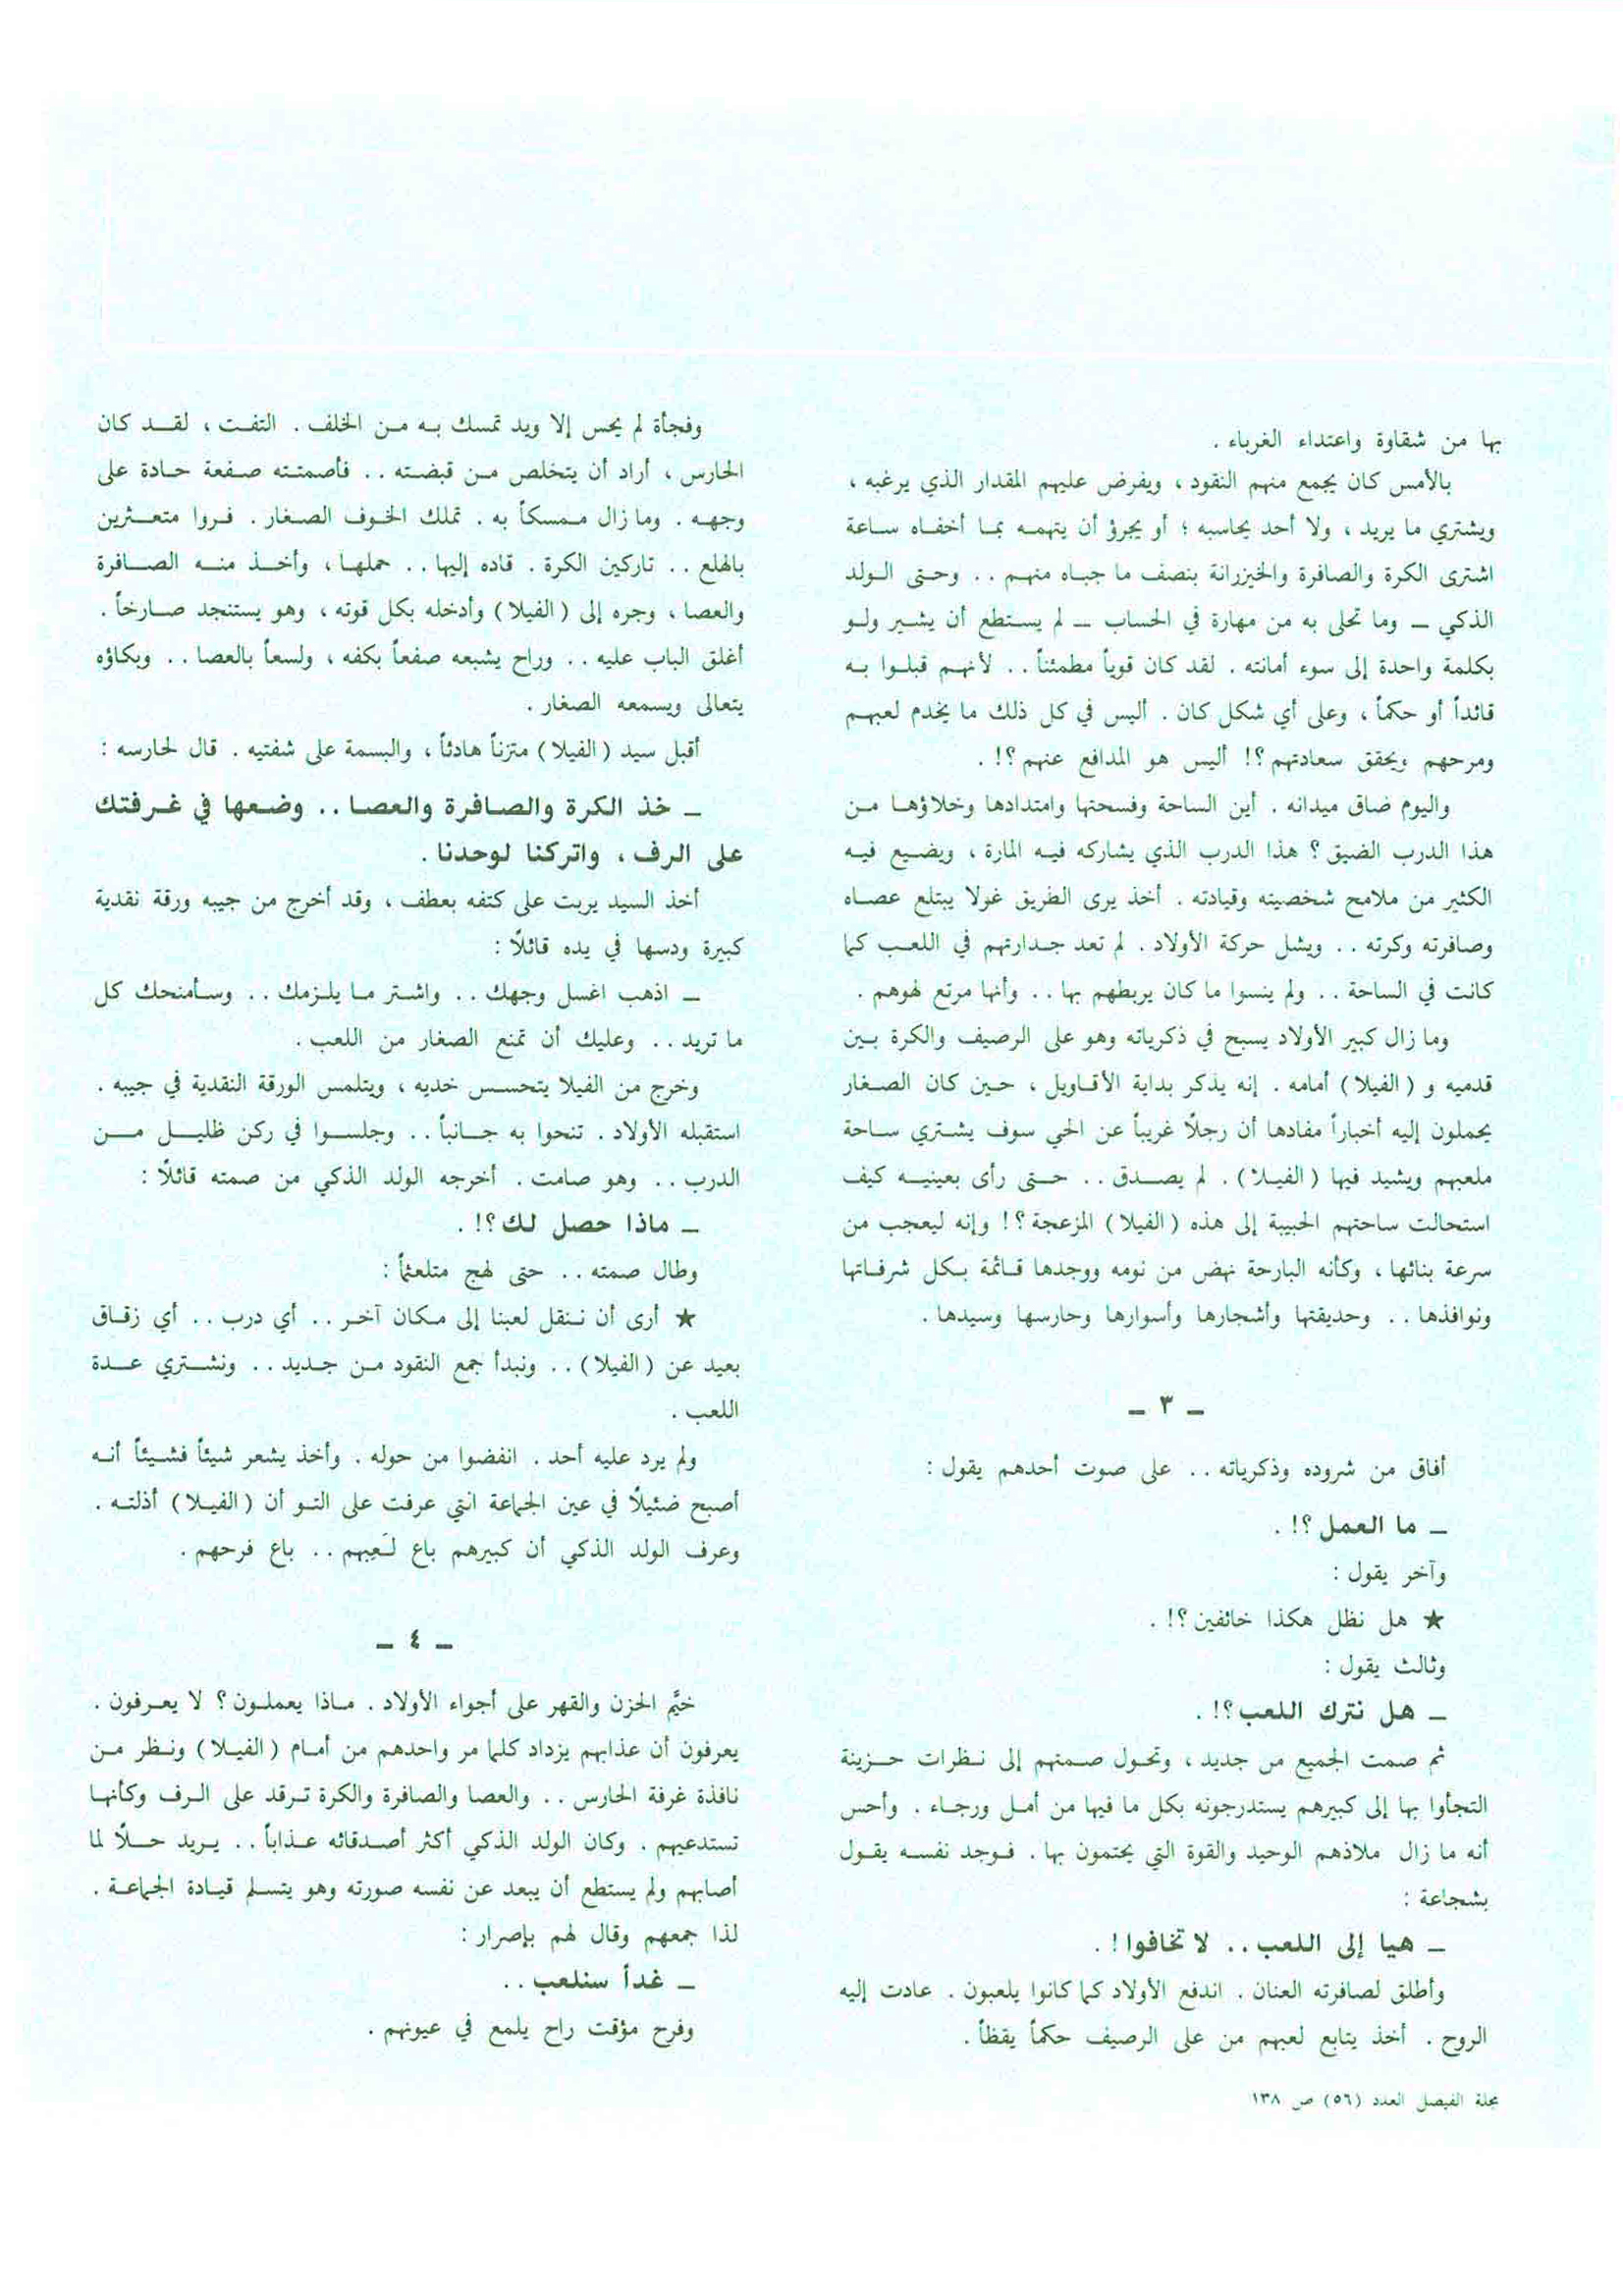 بها من شقاوة واعتداء الغرباء .
بالأمس كان يجمع منهم النقود ، ويفرض عليهم المقدار الذي يرغبه ،
ويشتري ما يريد ، ولا أحد يحاسبه ؛ أو يجرؤ أن يتهمه بما أخفاه ساعة
اشترى الكرة والصافرة والخيزرانة بنصف ما جباه منهم . . وحتى الولد
الذكي ــ وما تحلى به من مهارة في الحساب ــ لم يستطع أن يشير ولو
بكلمة واحدة إلى سوء أمانته . لقد كان قوياً مطمئناً . . لأنهم قبلوا به
قائداً أو حكماً ، وعلى أي شكل كان . أليس في كل ذلك ما يخدم لعبهم
ومرحهم ويحقق سعادتهم ؟! أليس هو المدافع عنهم ؟! .
واليوم ضاق ميدانه . أين الساحة وفسحتها وامتدادها وخلاؤها من
هذا الدرب الضيق ؟ هذا الدرب الذي يشاركه فيه المارة ، ويضيع فيه
الكثير من ملامح شخصيته وقيادته . أخذ يرى الطريق غولا يبتلع عصاه
وصافرته وكرته . . ويشل حركة الأولاد . لم تعد جدارتهم في اللعب كما
كانت في الساحة . . ولم ينسوا ما كان يربطهم بها . . وأنها مرتع لهوهم .
وما زال كبير الأولاد يسبح في ذكرياته وهو على الرصيف والكرة بين
قدميه و ( الفيلا ) أمامه . إنه يذكر بداية الأقاويل ، حين كان الصغار
يحملون إليه أخباراً مفادها أن رجلاً غريباً عن الحي سوف يشتري ساحة
ملعبهم ويشيد فيها ( الفيلا ) . لم يصدق . . حتى رأى بعينيه كيف
استحالت ساحتهم الحبيبة إلى هذه ( الفيلا ) المزعجة ؟! وإنه ليعجب من
سرعة بنائها ، وكأنه البارحة نهض من نومه ووجدها قائمة بكل شرفاتها
ونوافذها . . وحديقتها وأشجارها وأسوارها وحارسها وسيدها .
ــ ٣ ــ
أفاق من شروده وذكرياته . . على صوت أحدهم يقول :
ــ ما العمل ؟! .
وآخر يقول :
★ هل نظل هكذا خائفين ؟! .
وثالث يقول :
ــ هل نترك اللعب ؟! .
ثم صمت الجميع من جديد ، وتحول صمتهم إلى نظرات حزينة
التجأوا بها إلى كبيرهم يستدرجونه بكل ما فيها من أمل ورجاء . وأحس
أنه ما زال ملاذهم الوحيد والقوة التي يحتمون بها . فوجد نفسه يقول
بشجاعة :
ــ هيا إلى اللعب . . لا تخافوا ! .
وأطلق لصافرته العنان . اندفع الأولاد كما كانوا يلعبون . عادت إليه
الروح . أخذ يتابع لعبهم من على الرصيف حكماً يقظاً .
وفجأة لم يحس إلا ويد تمسك به من الخلف . التفت ، لقد كان
الحارس ، أراد أن يتخلص من قبضته . . فأصمتته صفعة حادة على
وجهه . وما زال ممسكاً به . تملك الخوف الصغار . فروا متعثرين
بالهلع . . تاركين الكرة . قاده إليها . . حملها ، وأخذ منه الصافرة
والعصا ، وجره إلى ( الفيلا ) وأدخله بكل قوته ، وهو يستنجد صارخاً .
أغلق الباب عليه . . وراح يشبعه صفعاً بكفه ، ولسعاً بالعصا . . وبكاؤه
يتعالى ويسمعه الصغار .
أقبل سيد ( الفيلا ) متزناً هادئاً ، والبسمة على شفتيه . قال لحارسه :
ــ خذ الكرة والصافرة والعصا . . وضعها في غرفتك
على الرف ، واتركنا لوحدنا .
أخذ السيد يربت على كتفه بعطف ، وقد أخرج من جيبه ورقة نقدية
كبيرة ودسها في يده قائلاً :
ــ اذهب اغسل وجهك . . واشتر ما يلزمك . . وسأمنحك كل
ما تريد . . وعليك أن تمنع الصغار من اللعب .
وخرج من الفيلا يتحسس خديه ، ويتلمس الورقة النقدية في جيبه .
استقبله الأولاد . تنحوا به جانباً . . وجلسوا في ركن ظليل من
الدرب . . وهو صامت . أخرجه الولد الذكي من صمته قائلاً :
ــ ماذا حصل لك ؟! .
وطال صمته . . حتى لهج متلعثماً :
★ أرى أن ننقل لعبنا إلى مكان آخر . . أي درب . . أي زقاق
بعيد عن ( الفيلا ) . . ونبدأ جمع النقود من جديد . . ونشتري عدة
اللعب .
ولم يرد عليه أحد . انفضوا من حوله . وأخذ يشعر شيئاً فشيئاً أنه
أصبح ضئيلاً في عين الجماعة التي عرفت على التو أن ( الفيلا ) أذلته .
وعرف الولد الذكي أن كبيرهم باع لَعِبهم . . باع فرحهم .
ــ ٤ ــ
خيَّم الحزن والقهر على أجواء الأولاد . ماذا يعملون ؟ لا يعرفون .
يعرفون أن عذابهم يزداد كلما مر واحدهم من أمام ( الفيلا ) ونظر من
نافذة غرفة الحارس . . والعصا والصافرة والكرة ترقد على الرف وكأنها
تستدعيهم . وكان الولد الذكي أكثر أصدقائه عذاباً . . يريد حلاً لما
أصابهم ولم يستطع أن يبعد عن نفسه صورته وهو يتسلم قيادة الجماعة .
لذا جمعهم وقال لهم بإصرار :
ــ غداً سنلعب . .
وفرح مؤقت راح يلمع في عيونهم .
مجلة الفيصل العدد (٥٦) ص ١٣٨